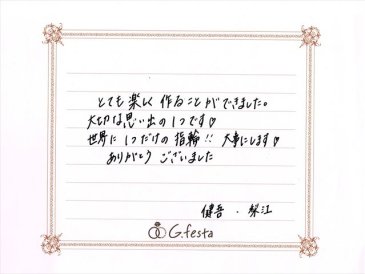 とても楽しく作ることができました。
大切な思い出の1つです♡
世界に1つだけの指輪!!大事にします♡
ありがとうございました
健吾・梨江
G.festa